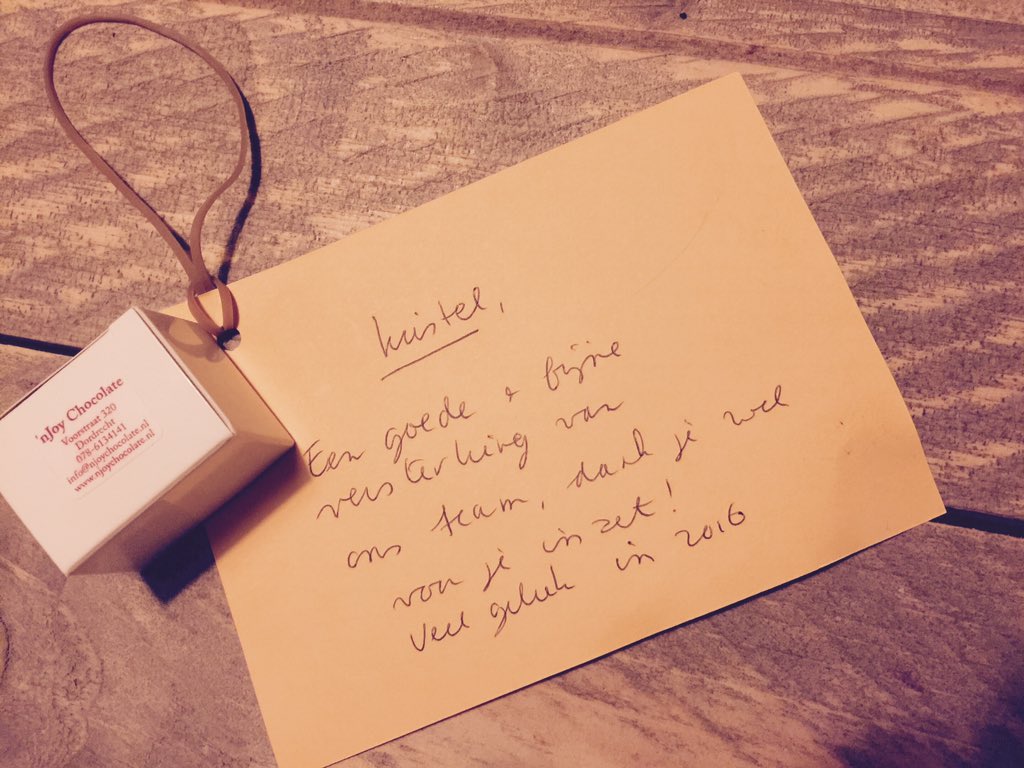 'nJoy Chocolate
Voorstraat 320
Dordrecht
078-6134141
info@njoychocolate.nl
www.njoychocolate.nl
kristel,
Een goede + fijne
versterking van
ons team, dank je wel
voor je inzet!
Veel geluk in 2016